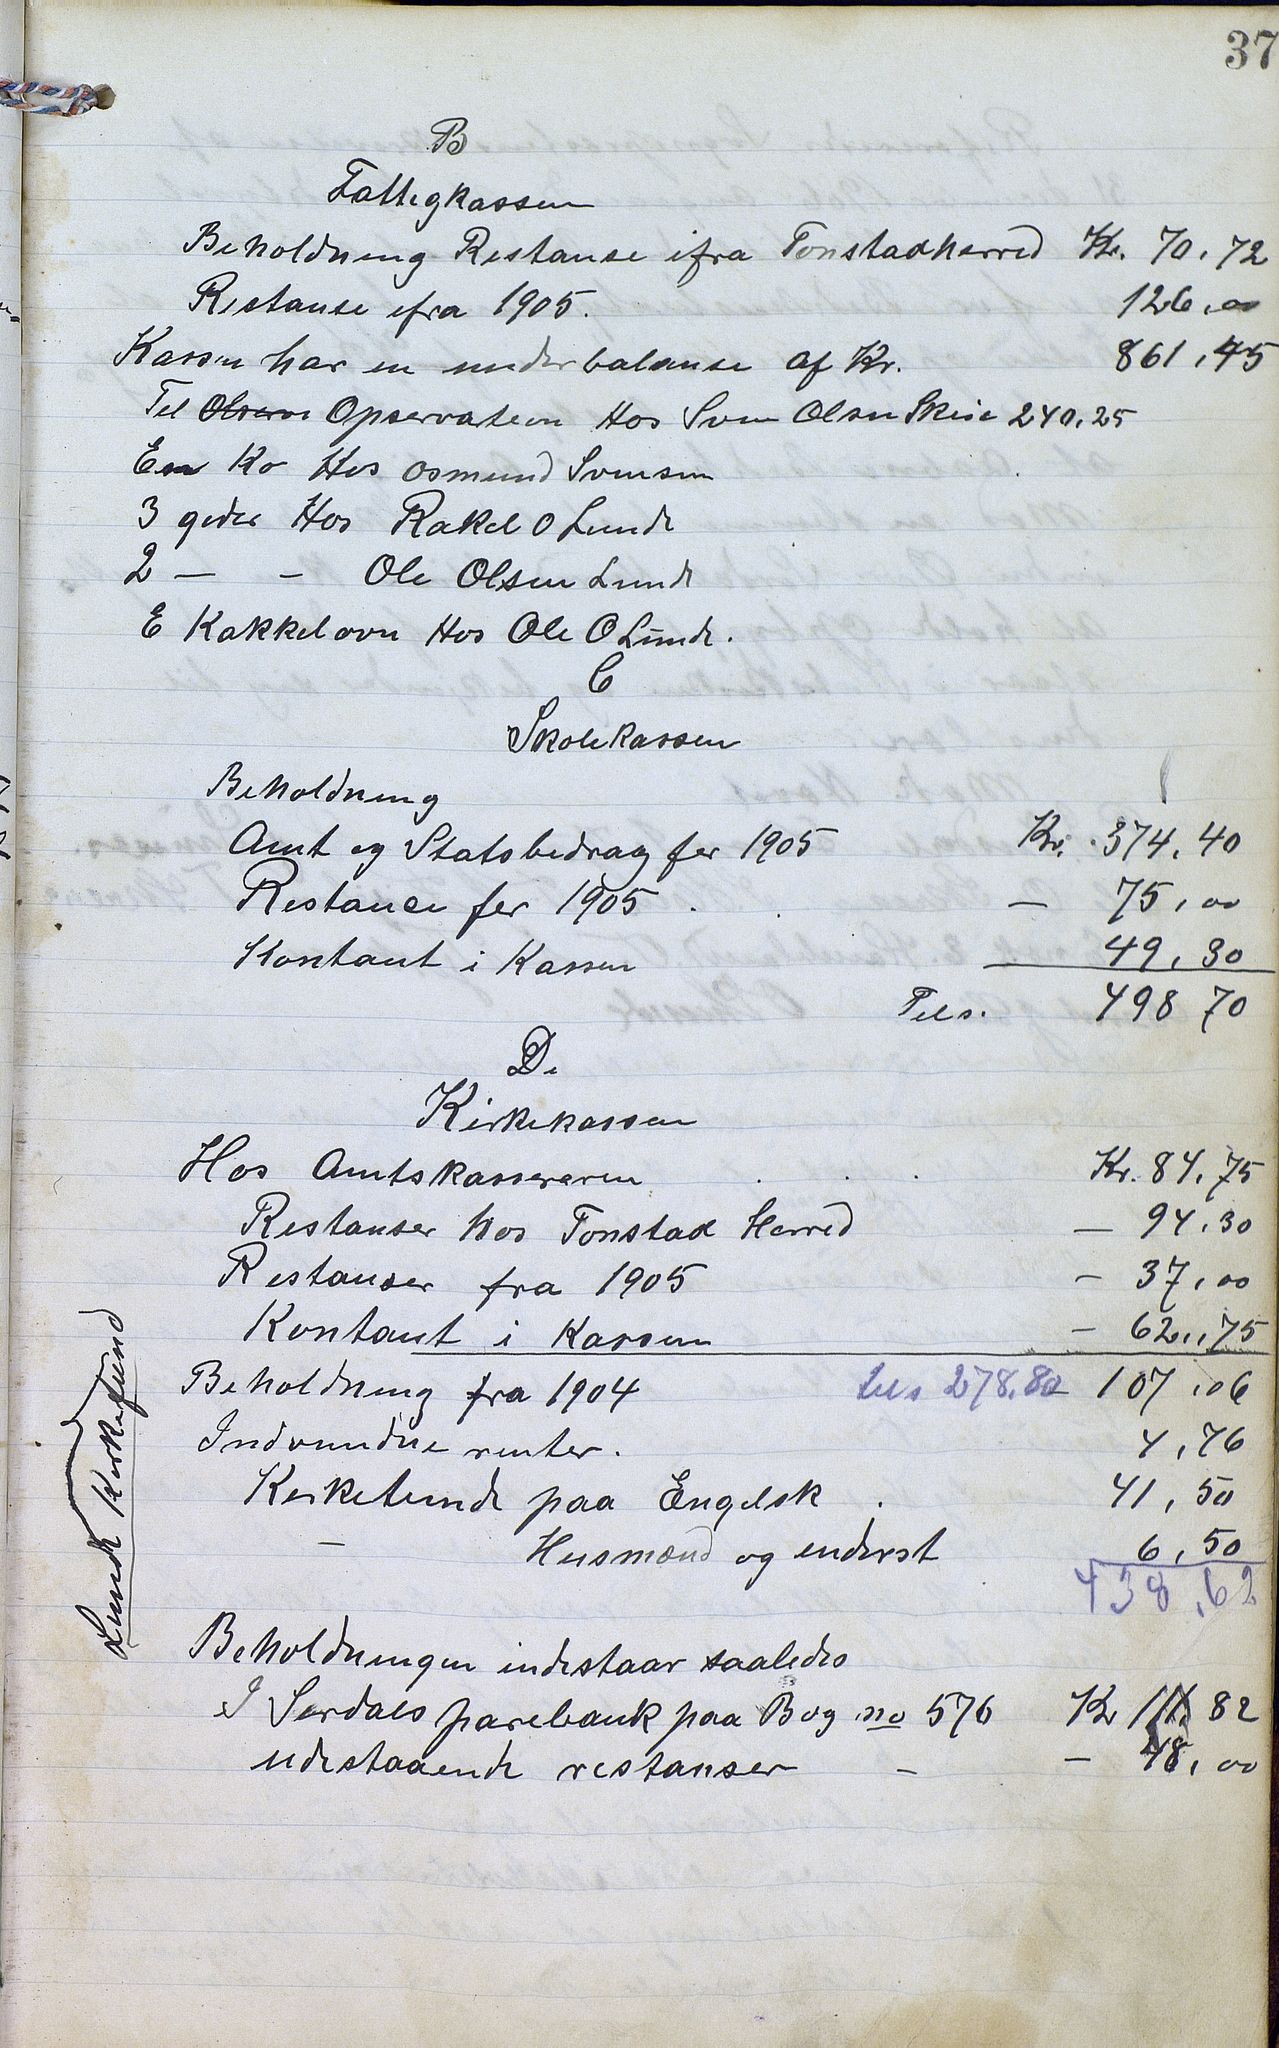 37
B
Fattigkassen
Beholdning Restanse ifra Tonstadherred Kr. 70,72
Restanse ifra 1905. 126,00
Kassen har en underbalanse af Kr. 861,45
Til Opservation Hos Sven Olsen Skeie 240,25
En Ko Hos Osmund Svensen
3 geder Hos Rakel O Lunde
2 — - Ole Olsen Lunde
E Kakkelovn Hos Ole O Lunde.
C
Skolekassen
Beholdning
Amt og Statsbedrag for 1905 Kr. 374,40
Restance for 1905 . . — 75,00
Kontant i Kassen 49,30
Tils. 498 70
D.
Kirkekassen
Hos Amtskassereren . . . Kr. 84,75
Restanser hos Tonstad Herred — 94,30
Restanser fra 1905 - 37,00
Kontant i Kassen - 62,75
Beholdning fra 1904 tils 278,80 107,06
Indvundne renter. 4,76
Kirketiende paa Engelsk . 41,50
— Husmænd og inderst 6,50
438,62
Lunde Kirkefund
Beholdningen indestaar saaledes
I Serdals parebank paa Bog no 576 Kr 111 82
udestaaende restanser — — 48,00